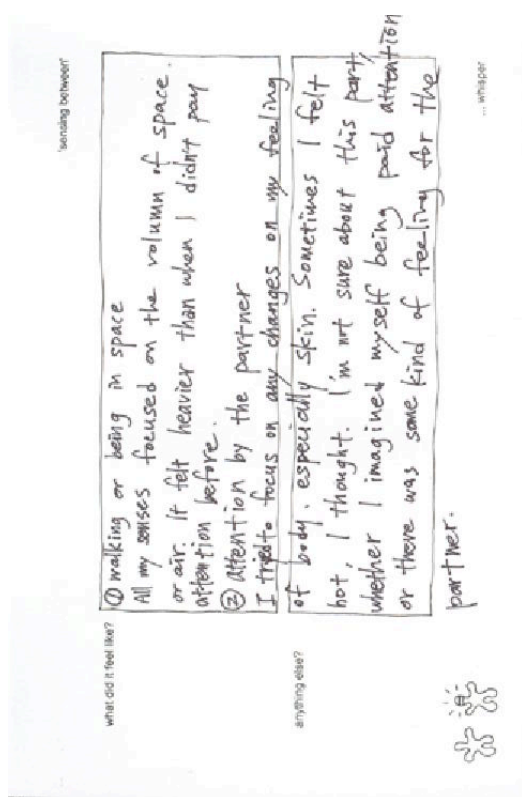 'sensing between'
what did it feel like?
① walking or being in space
All my senses focused on the volumn of space
or air. It felt heavier than when I didn't pay
attention before.
② attention by the partner
I tried to focus on any changes on my feeling
anything else?
of body, especially skin. Sometimes I felt
hot, I thought. I'm not sure about this part,
whether I imagined myself being paid attention
or there was some kind of feeling for the
partner.
... whisper